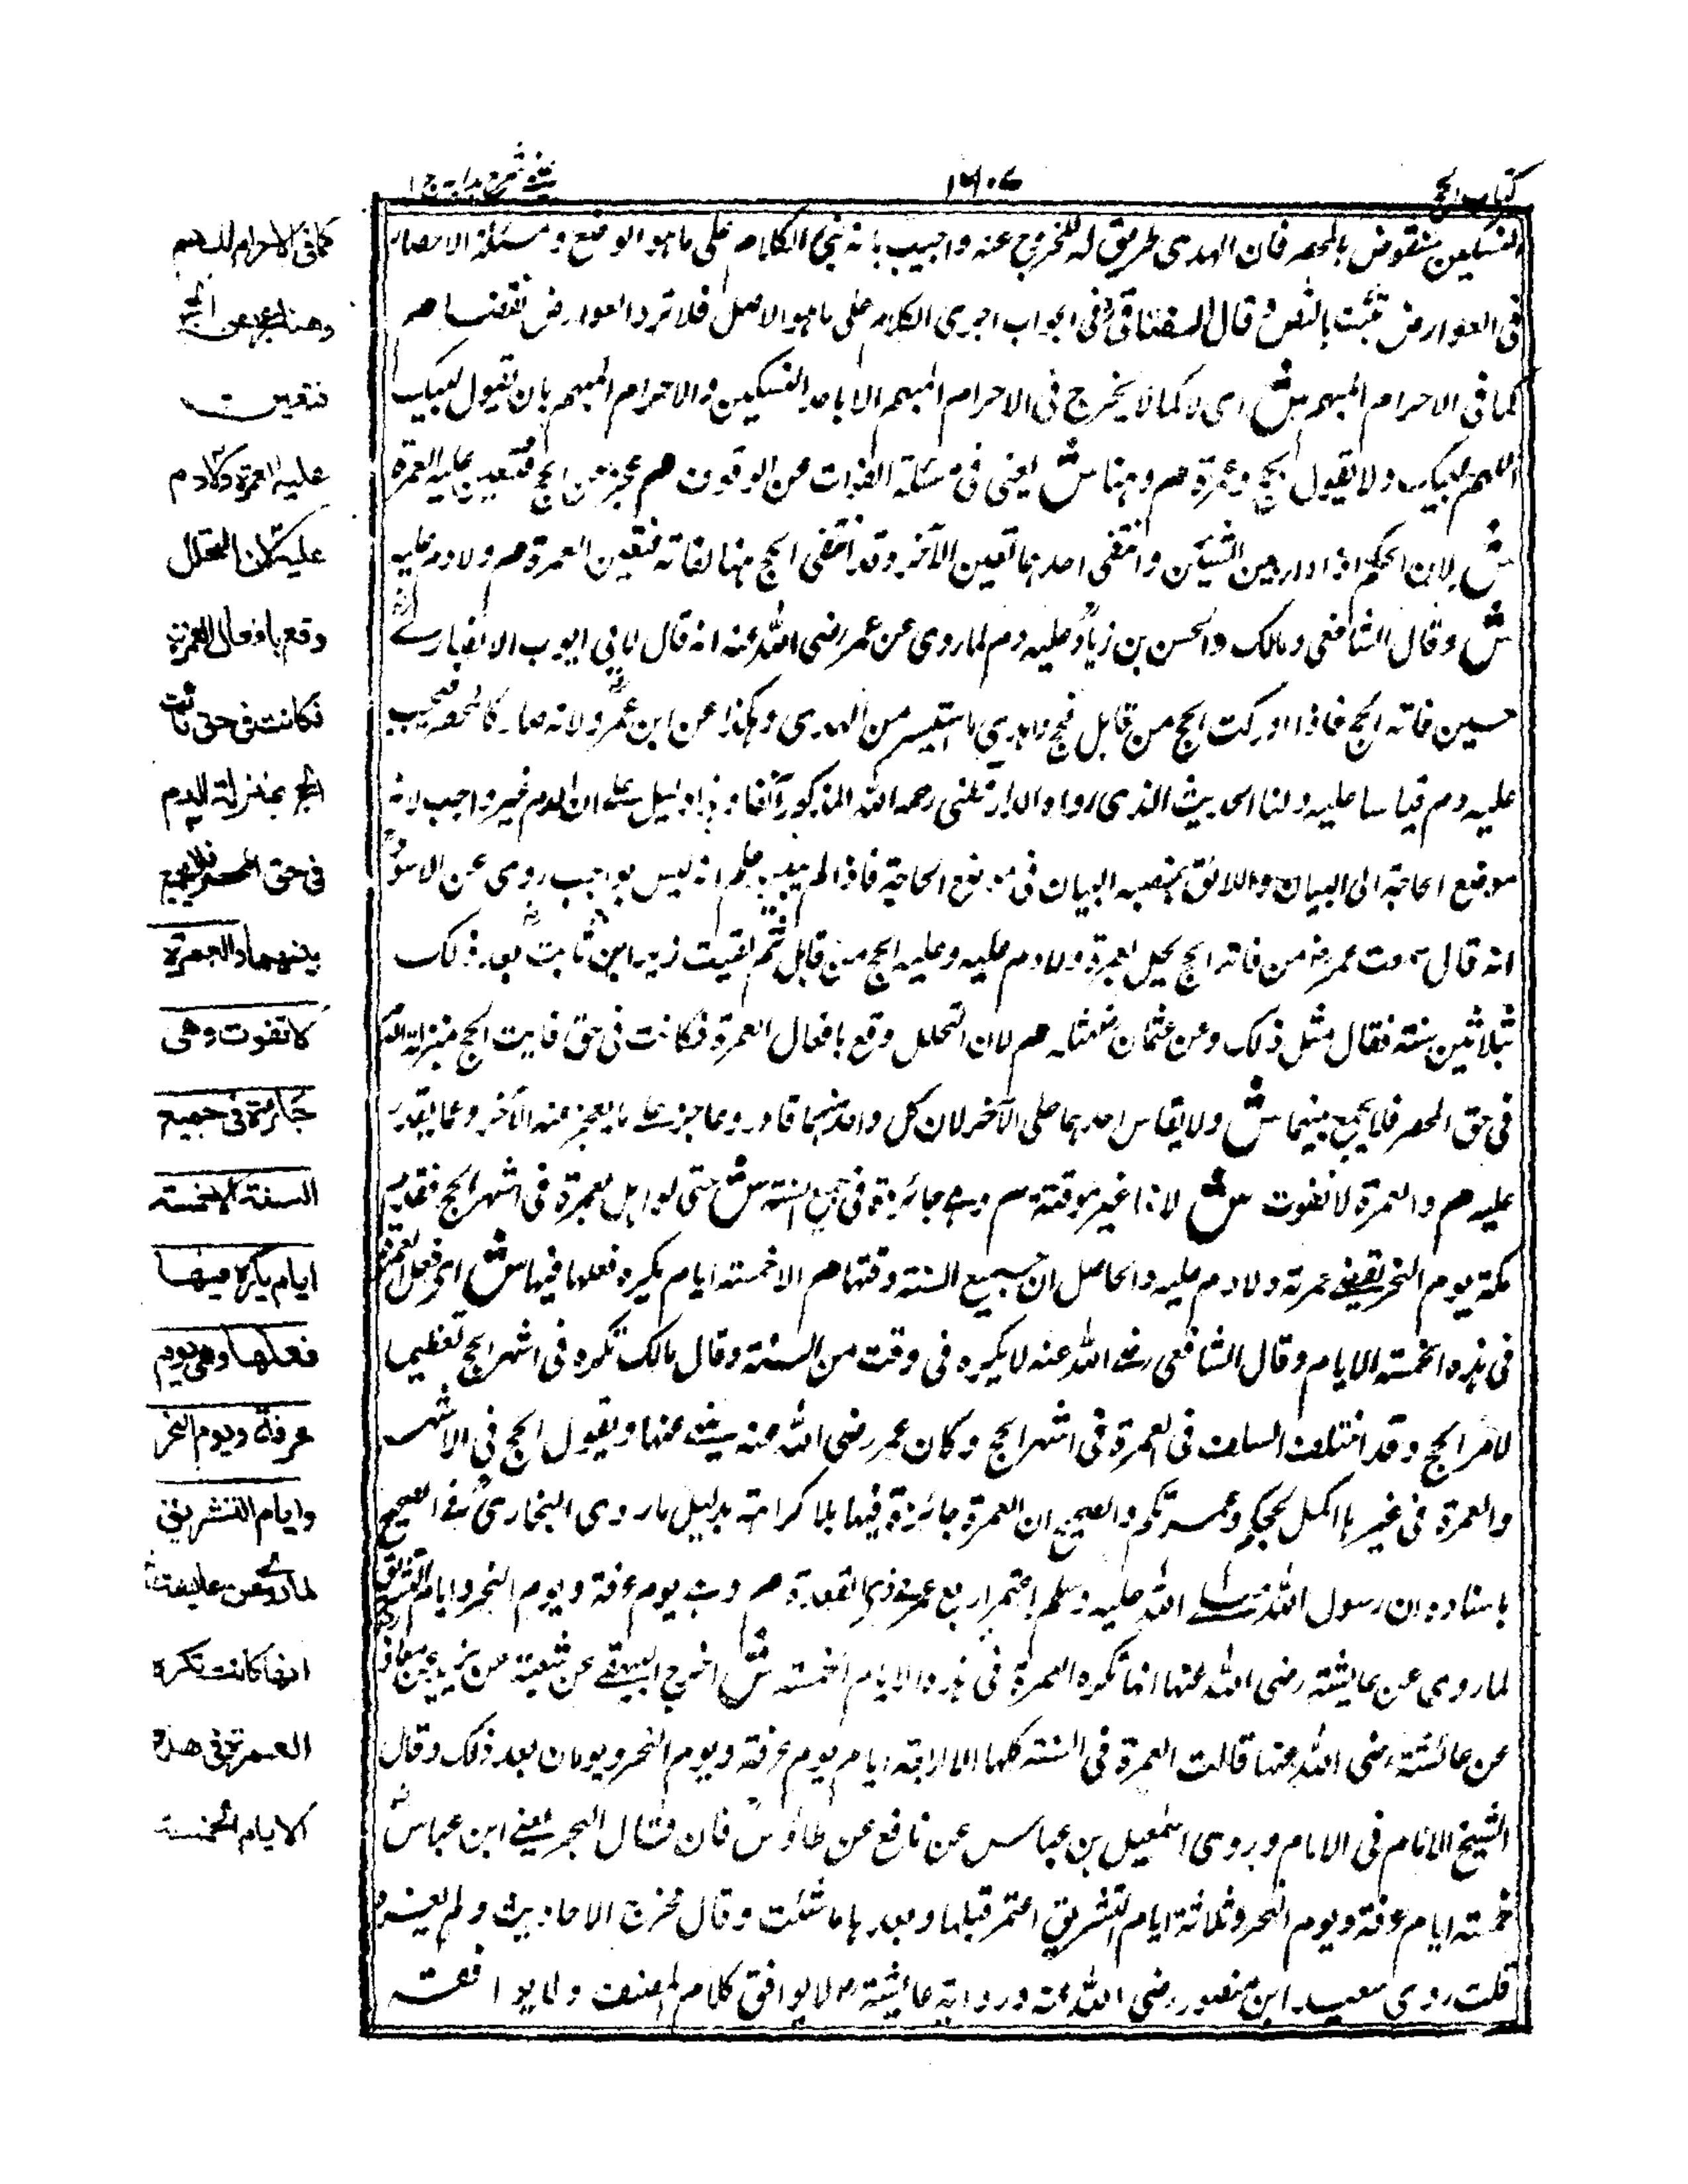 كتاب الحج
١٦٠٧
عينى شرح هداية ج ١
النسكين منقوض بالمحصر فان الهدى طريق له للخروج عنه واجيب بانه بنى الكلام على ما هو الوضع ومسئلة الاحصار
فى العوارض تثبت بالنص وقال السغناقى فى الجواب اجرى الكلام على ما هو الاصل فلا ترد العوارض نقضا صم
كما فى الاحرام المبهم ش اى كما لا يخرج فى الاحرام المبهم الا باحد النسكين والاحرام المبهم بان يقول لبيك
اللهم لبيك ولا يقول بحج وعمرة صم وههنا ش يعنى فى مسئلة الفوات عن الوقوف صم عجز عن الحج فتعين عليه العمرة
ش لان الحكم اذا دار بين الشيئين وانتفى احدهما تعين الآخر وقد انتفى الحج ههنا لفواته فتعين العمرة صم ولا دم عليه
ش وقال الشافعى ومالك والحسن بن زياد عليه دم لما روى عن عمر رضى الله عنه انه قال لابى ايوب الانصارى
حين فاته الحج فاذا ادركت الحج من قابل فحج واهدى ما استيسر من الهدى وهكذا عن ابن عمر ولانه صار كالمحصر فيجب
عليه دم قياسا عليه ولنا الحديث الذى رواه الدارقطنى رحمه الله المذكور آنفا وهذا دليل على ان الدم غير واجب لانه
موضع الحاجة الى البيان واللائق بمنصبه البيان فى موضع الحاجة فاذا لم يبين علم انه ليس بواجب روى عن الاسود
انه قال سمعت عمر من فاته الحج يحل بعمرة ولا دم عليه وعليه الحج من قابل ثم لقيت زيد ابن ثابت بعد ذلك
بثلاثين سنة فقال مثل ذلك وعن عثمان مثله صم لان التحلل وقع بافعال العمرة فكانت فى حق فايت الحج بمنزلة الدم
فى حق المحصر فلا يجمع بينهما ش ولا يقاس احدهما على الآخر لان كل واحد منهما قادر وعاجز على ما يعجز عنه الآخر وعما يقدر
عليه صم والعمرة لا تفوت ش لانها غير موقتة صم وهى جائزة فى جميع السنة ش حتى لو اهل بعمرة فى اشهر الحج فقدم
مكة يوم النحر يقضى عمرته ولا دم عليه والحاصل ان جميع السنة وقتها صم الا خمسة ايام يكره فعلها فيها ش اى فعل العمرة
فى هذه الخمسة الايام وقال الشافعى رضى الله عنه لا يكره فى وقت من السنة وقال مالك تكره فى اشهر الحج تعظيما
لامر الحج وقد اختلف السلف فى العمرة فى اشهر الحج وكان عمر رضى الله عنه ينهى عنها ويقول الحج فى الاشهر
والعمرة فى غيرها اكمل لحجكم وعمرتكم والصحيح ان العمرة جائزة فيها بلا كراهة بدليل ما روى البخارى فى الصحيح
باسناده ان رسول الله صلى الله عليه وسلم اعتمر اربع عمر فى ذى القعدة صم وهى يوم عرفة ويوم النحر وايام التشريق
لما روى عن عايشة رضى الله عنها انها تكره العمرة فى هذه الايام الخمسة ش اخرج البيهقى عن شعبة عن يزيد عن معاذة
عن عائشة رضى الله عنها قالت العمرة فى السنة كلها الا اربعة ايام يوم عرفة ويوم النحر ويومان بعد ذلك وقال
الشيخ الامام فى الامام وروى اسمعيل بن عباس عن نافع عن طاؤس فان قال البحر يعنى ابن عباس
خمسة ايام عرفة ويوم النحر وثلاثة ايام التشريق اعتمر قبلها وبعدها ما شئت وقال مخرج الاحاديث ولم يعزه
قلت روى سعيد ابن منصور رضى الله عنه ورواية عايشة لا يوافق كلام المصنف ولا يوافقه
كما فى الاحرام المبهم
وههنا عجز عن الحج
فتعينت
عليه العمرة ولا دم
عليه لان التحلل
وقع بافعال العمرة
فكانت فى حق فائت
الحج بمنزلة الدم
فى حق المحصر فلا يجمع
بينهما والعمرة
لا تفوت وهى
جائزة فى جميع
السنة الا خمسة
ايام يكره فيها
فعلها وهى يوم
عرفة ويوم النحر
وايام التشريق
لما روى عن عايشة
انها كانت تكره
العمرة فى هذه
الايام الخمسة